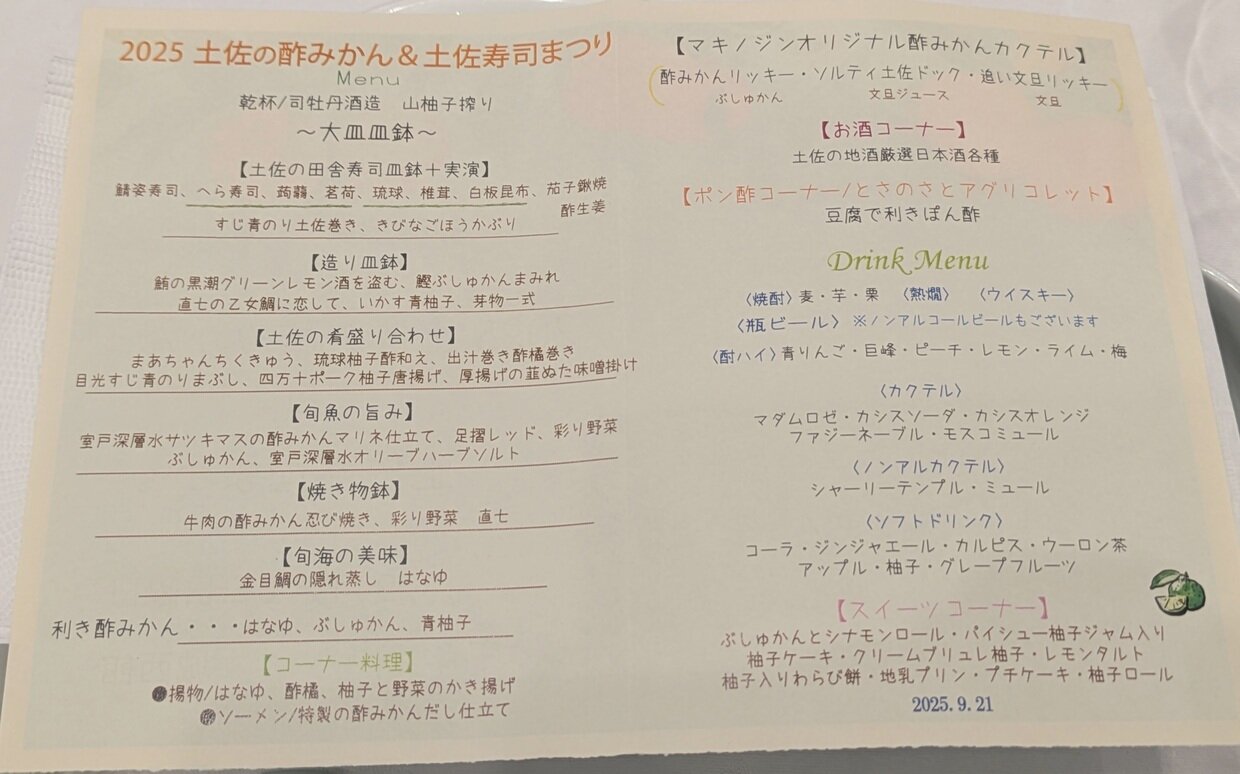 2025 土佐の酢みかん＆土佐寿司まつり
Menu
乾杯/司牡丹酒造　山柚子搾り
～大皿皿鉢～
【土佐の田舎寿司皿鉢＋実演】
鯖姿寿司、へら寿司、蒟蒻、茗荷、琉球、椎茸、白板昆布、茄子鍬焼
酢生姜
すじ青のり土佐巻き、きびなごほうかぶり
【造り皿鉢】
鮪の黒潮グリーンレモン酒を盗む、鰹ぶしゅかんまみれ
直七の乙女鯛に恋して、いかす青柚子、芽物一式
【土佐の肴盛り合わせ】
まあちゃんちくきゅう、琉球柚子酢和え、出汁巻き酢橘巻き
目光すじ青のりまぶし、四万十ポーク柚子唐揚げ、厚揚げの韮ぬた味噌掛け
【旬魚の旨み】
室戸深層水サツキマスの酢みかんマリネ仕立て、足摺レッド、彩り野菜
ぶしゅかん、室戸深層水オリーブハーブソルト
【焼き物鉢】
牛肉の酢みかん忍び焼き、彩り野菜　直七
【旬海の美味】
金目鯛の隠れ蒸し　はなゆ
利き酢みかん・・・はなゆ、ぶしゅかん、青柚子
【コーナー料理】
●揚物/はなゆ、酢橘、柚子と野菜のかき揚げ
●ソーメン/特製の酢みかんだし仕立て
【マキノジンオリジナル酢みかんカクテル】
（酢みかんリッキー・ソルティ土佐ドック・追い文旦リッキー）
ぶしゅかん　文旦ジュース　文旦
【お酒コーナー】
土佐の地酒厳選日本酒各種
【ポン酢コーナー/とさのさとアグリコレット】
豆腐で利きぽん酢
Drink Menu
〈焼酎〉麦・芋・栗　〈熱燗〉　〈ウイスキー〉
〈瓶ビール〉※ノンアルコールビールもございます
〈酎ハイ〉青りんご・巨峰・ピーチ・レモン・ライム・梅
〈カクテル〉
マダムロゼ・カシスソーダ・カシスオレンジ
ファジーネーブル・モスコミュール
〈ノンアルカクテル〉
シャーリーテンプル・ミュール
〈ソフトドリンク〉
コーラ・ジンジャエール・カルピス・ウーロン茶
アップル・柚子・グレープフルーツ
【スイーツコーナー】
ぶしゅかんとシナモンロール・パイシュー柚子ジャム入り
柚子ケーキ・クリームブリュレ柚子・レモンタルト
柚子入りわらび餅・地乳プリン・プチケーキ・柚子ロール
2025.9.21